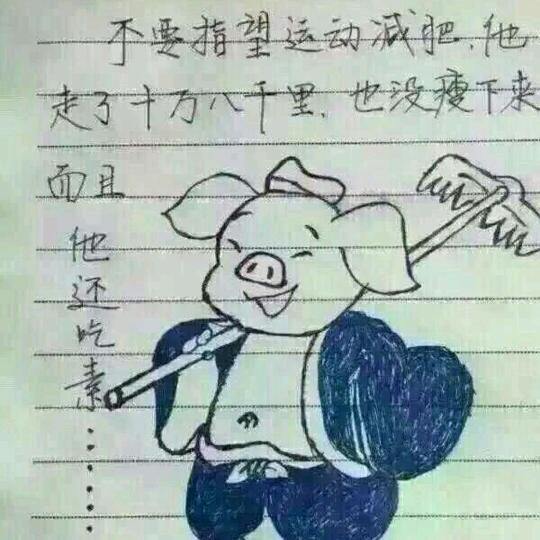 不要指望运动减肥，他
走了十万八千里，也没瘦下来
而且
他
还
吃
素
......